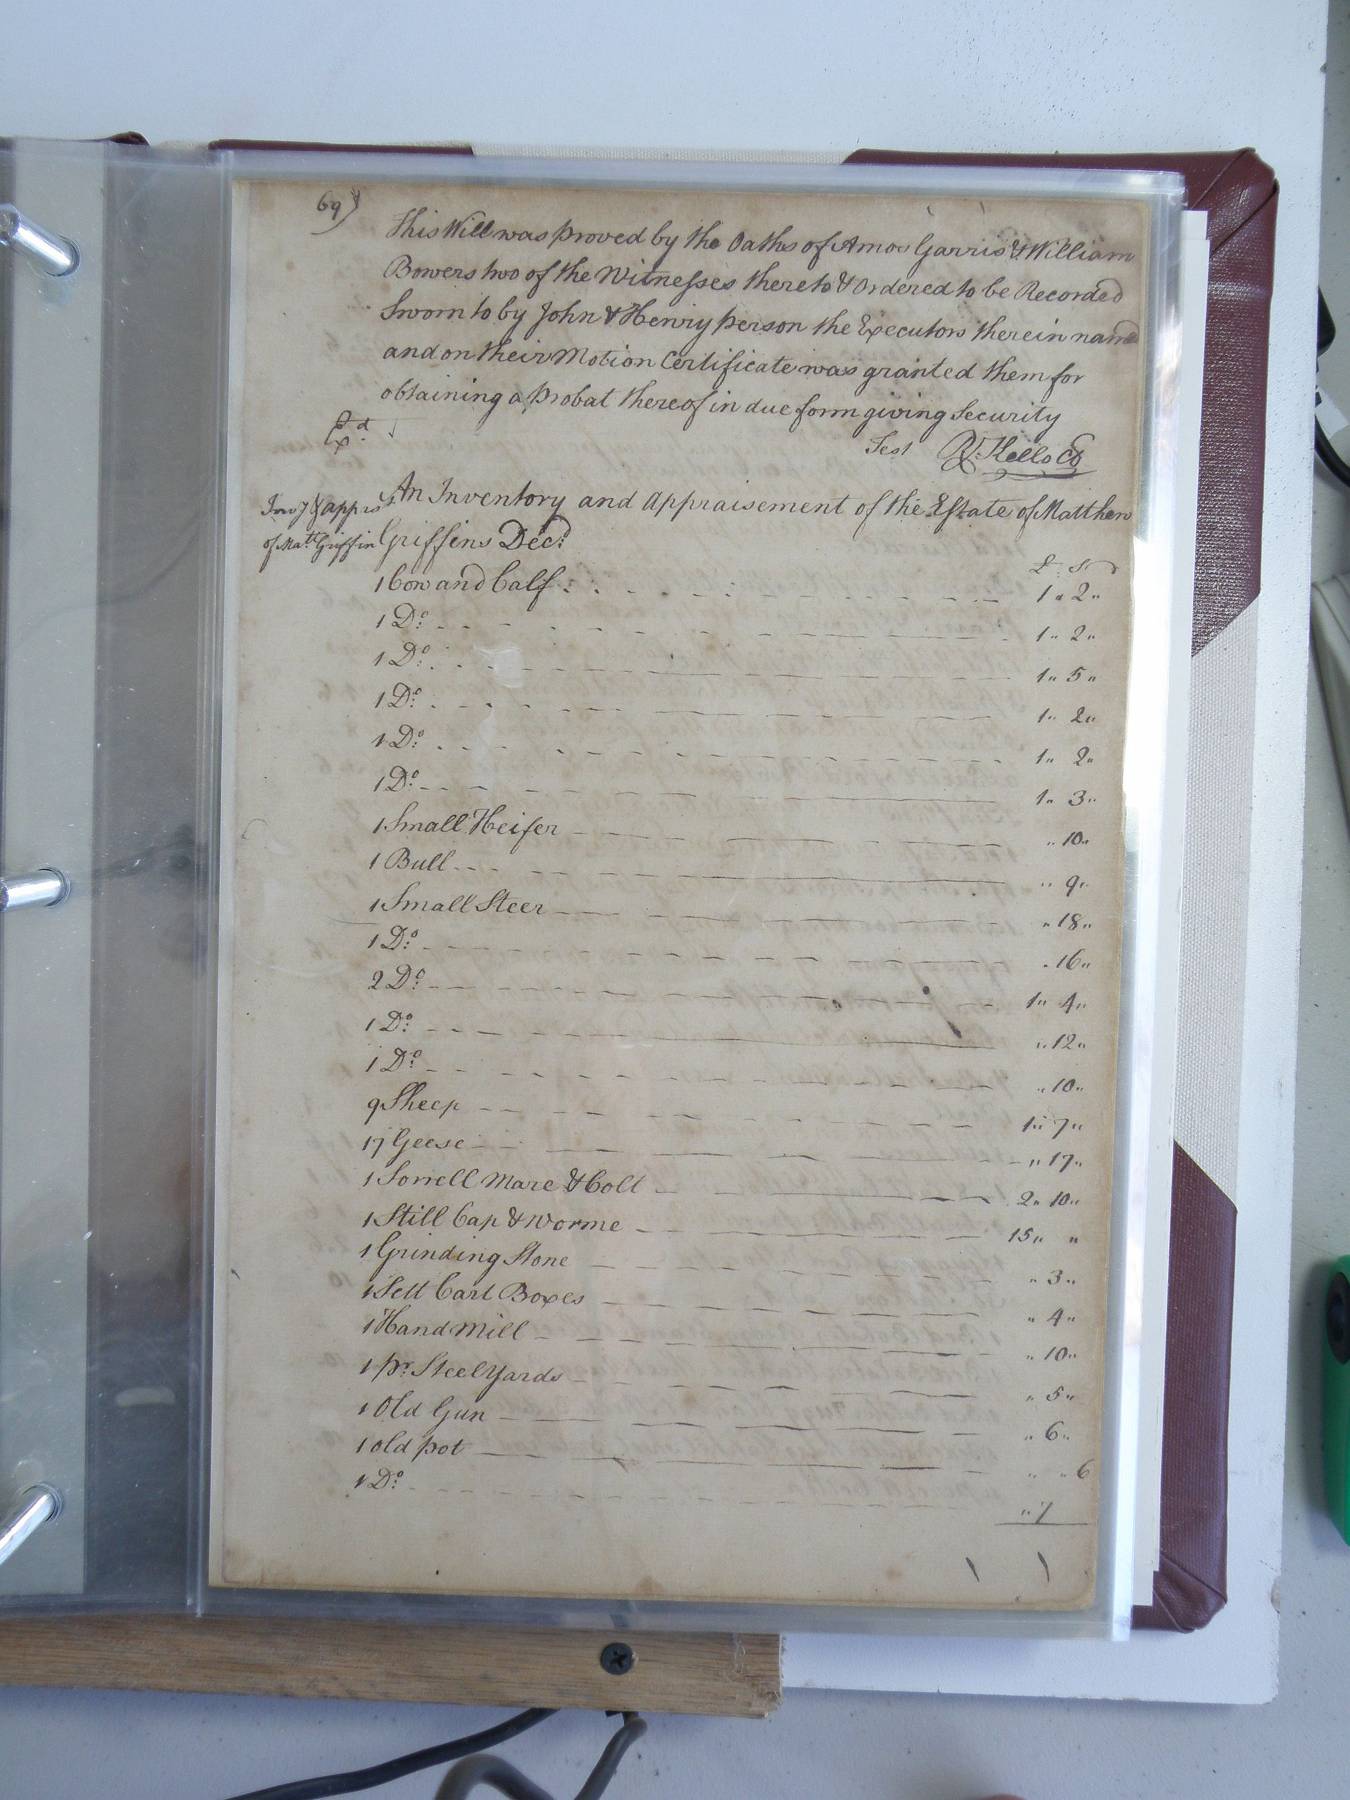 69)
This Will was proved by the Oaths of Amos Garris & William
Bowers two of the Witnesses thereto & Ordered to be Recorded
Sworn to by John & Henry person the Executors therein named
and on their Motion Certificate was granted them for
obtaining a probat thereof in due form giving Security
Exd
Test R. Kello CC
Inv.y & apprs.t
of Mat.t Griffin
An Inventory and Appraisement of the Estate of Matthew
Griffins Dec:d
£ : S : D
1 Cow and Calf 1 " 2 "
1 D.o 1 " 2 "
1 D.o 1 " 5 "
1 D.o 1 " 2 "
1 D.o 1 " 2 "
1 D.o 1 " 3 "
1 Small Heifer " 10 "
1 Bull " 9 "
1 Small Steer " 18 "
1 D.o " 16 "
2 D.o 1 " 4 "
1 D.o " 12 "
1 D.o " 10 "
9 Sheep 1 " 7 "
17 Geese " 17 "
1 Sorrell Mare & Colt 2 " 10 "
1 Still Cap & Worme 15 " "
1 Grinding Stone " 3 "
1 Sett Cart Boxes " 4 "
1 Hand Mill " 10 "
1 pr. Steel Yards " 5 "
1 Old Gun " 6 "
1 old pot " " 6
1 D.o " 7